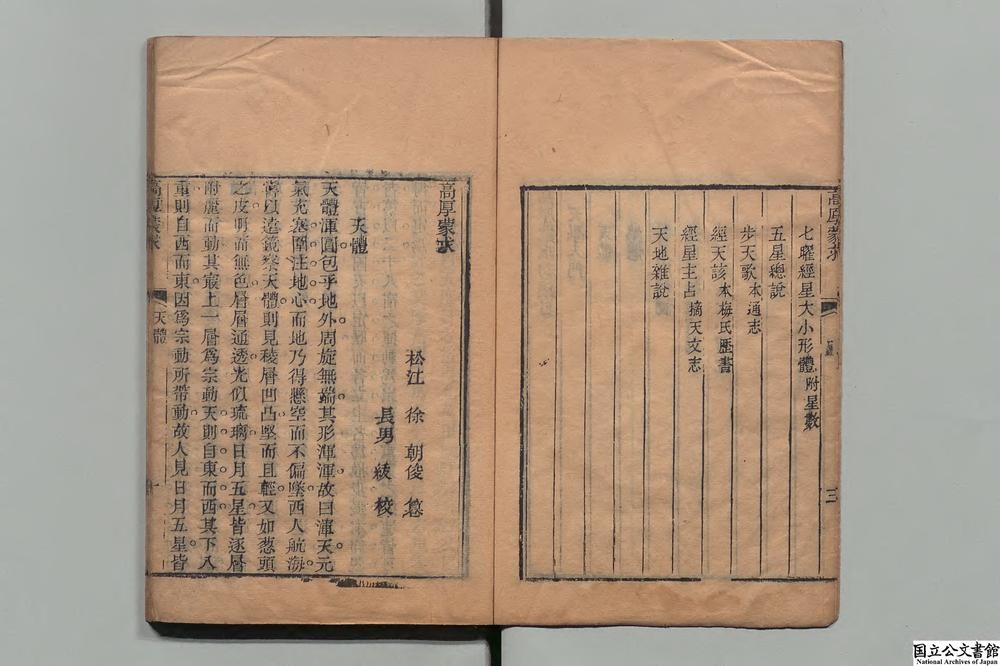 高厚蒙求
三
七曜經星大小形體附星數
五星總說
步天歌本通志
經天該本梅氏歷書
經星主占摘天文志
天地雜說
高厚蒙求
松江 徐 朝俊
長男 綾 校
天體
天體渾圓包乎地外周旋無端其形渾渾故曰渾天元
氣充塞圍注地心而地乃得懸空而不偏墜西人航海
嘗以遠鏡察天體則見稜層凹凸堅而且輕又如葱頭
之皮明而無色層層通透光似琉璃日月五星皆逐層
附麗而動其最上一層爲宗動天則自東而西其下八
重則自西而東因爲宗動所帶動故人見日月五星皆
高厚蒙求
天體
國立公文書館
National Archives of Japan